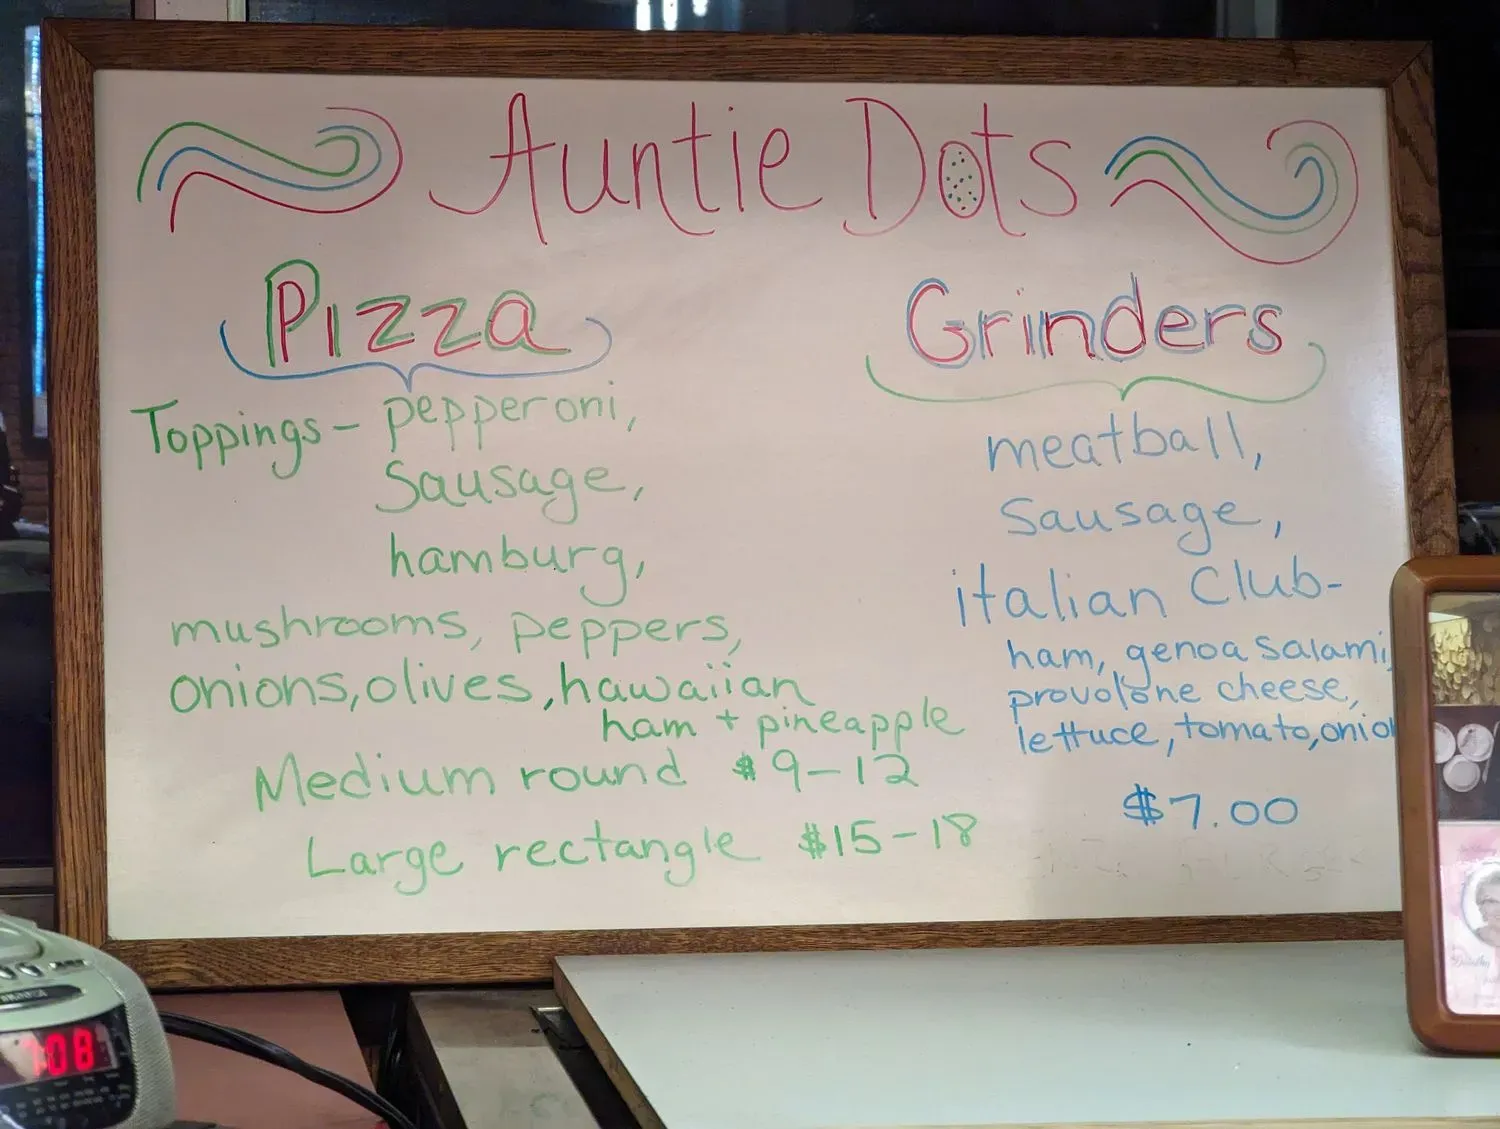 Auntie Dots
Pizza
Toppings - pepperoni,
Sausage,
hamburg,
mushrooms, peppers,
onions, olives, hawaiian
ham + pineapple
Medium round $9-12
Large rectangle $15-18
Grinders
meatball,
Sausage,
italian Club-
ham, genoa salami,
provolone cheese,
lettuce, tomato, onion
$7.00
7:08